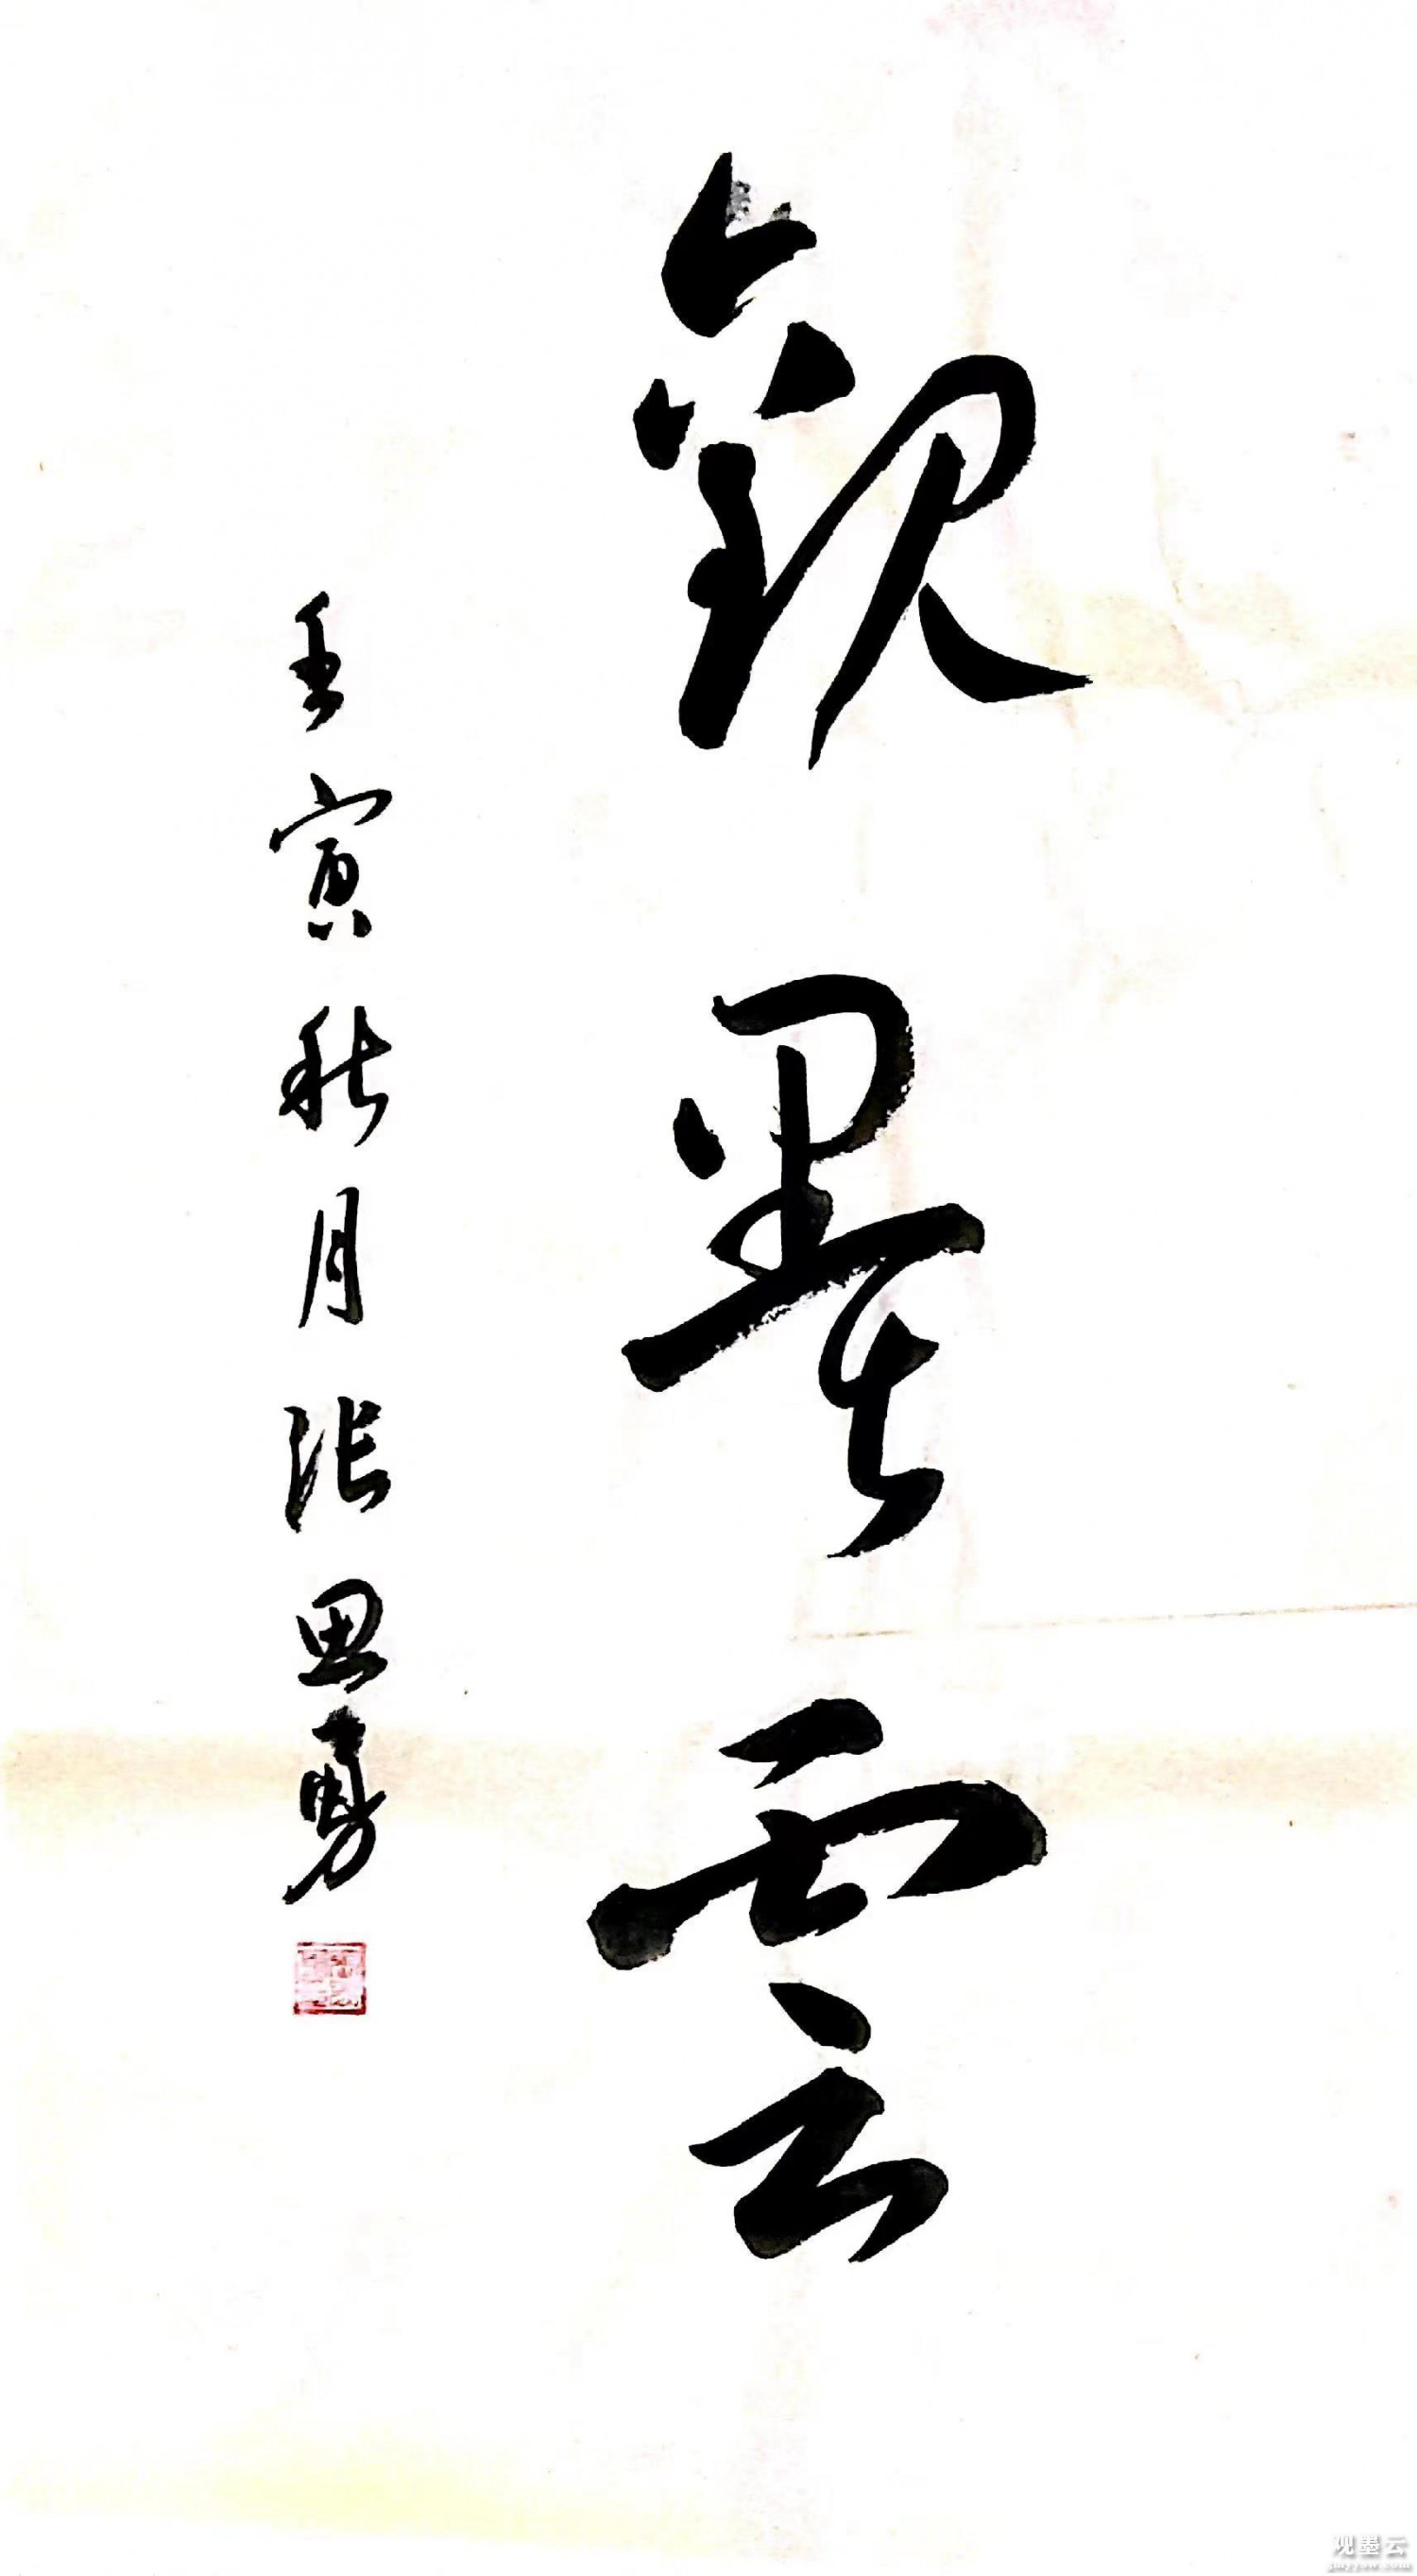 觀墨雲
壬寅秋月張思勇
观墨云